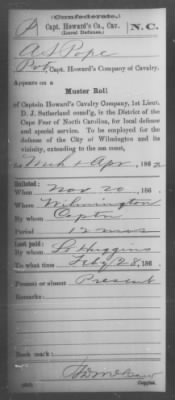 (Confederate.)
P Capt. Howard's Co., Cav. N.C.
(Local Defense.)
A S Pope
Pvt, Capt. Howard's Company of Cavalry.
Appears on a
Muster Roll
of Captain Howard's Cavalry Company, 1st Lieut.
D. J. Sutherland comd'g, in the District of the
Cape Fear of North Carolina, for local defense
and special service. To be employed for the
defense of the City of Wilmington and its
vicinity, extending to the sea coast,
for Mch & Apr, 186
Enlisted:
When Nov 20, 186
Where Wilmington
By whom Captn
Period 12 mos
Last paid:
By whom Lt Huggins
To what time Feby 28, 186
Present or absent Present
Remarks:
Book mark:
Copyist.